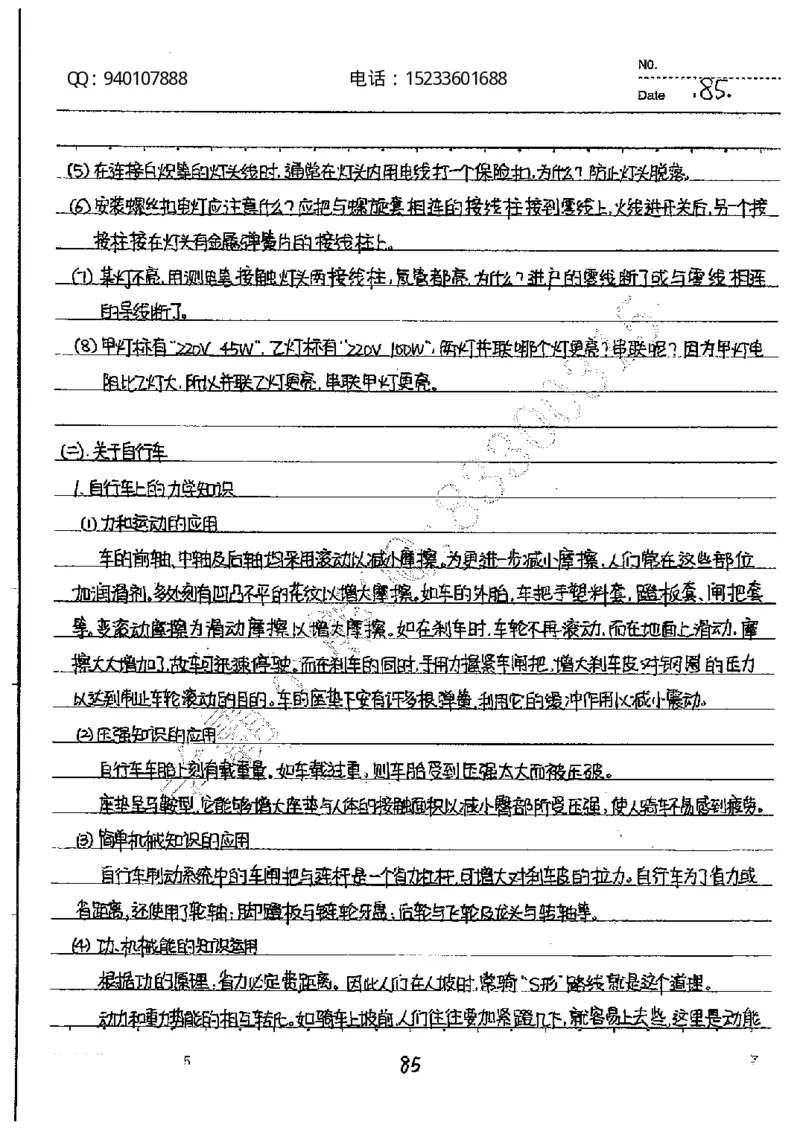 QQ：940107888 电话：15233601688
NO.
Date .85.
(5) 在连接白炽灯的灯头线时,通常在灯头内用电线打一个保险扣,为什么？防止灯头脱落。
(6) 安装螺丝扣电灯应注意什么？应把与螺旋套相连的接线柱接到零线上,火线进开关后,另一个接
接柱接在灯头有金属弹簧片的接线柱上。
(7) 某灯不亮,用测电笔接触灯头两接线柱,氖管都亮,为什么？进户的零线断了或与零线相连
的导线断了。
(8) 甲灯标有"220V 45W",乙灯标有"220V 100W",两灯并联哪个灯更亮？串联呢？因为甲灯电
阻比乙灯大,所以并联乙灯更亮,串联甲灯更亮。
(二).关于自行车
1.自行车上的力学知识
(1)力和运动的应用
车的前轴,中轴及后轴均采用滚动以减小摩擦。为更进一步减小摩擦,人们常在这些部位
加润滑剂。多处刻有凹凸不平的花纹以增大摩擦。如车的外胎,车把手塑料套,蹬板套、闸把套
等。变滚动摩擦为滑动摩擦以增大摩擦。如在刹车时,车轮不再滚动,而在地面上滑动,摩
擦大大增加了,故车可迅速停驶。而在刹车的同时,手用力握紧车闸把,增大刹车皮对钢圈的压力
以达到制止车轮滚动的目的。车的座垫下安有许多根弹簧,利用它的缓冲作用以减小震动。
(2)压强知识的应用
自行车车胎上刻有载重量。如车载过重,则车胎受到压强太大而被压破。
座垫呈马鞍型,它能够增大座垫与人体的接触面积以减小臀部所受压强,使人骑车不易感到疲劳。
(3)简单机械知识的应用
自行车制动系统中的车闸把与连杆是一个省力杠杆,可增大对刹车皮的拉力。自行车为了省力或
省距离,还使用了轮轴:脚蹬板与链轮牙盘;后轮与飞轮及龙头与转轴等。
(4)功、机械能的知识运用
根据功的原理:省力必定费距离。因此人们在上坡时,常骑"S形"路线就是这个道理。
动力和重力势能的相互转化。如骑车上坡前,人们往往要加紧蹬几下,就容易上去些,这里是动能
5 85